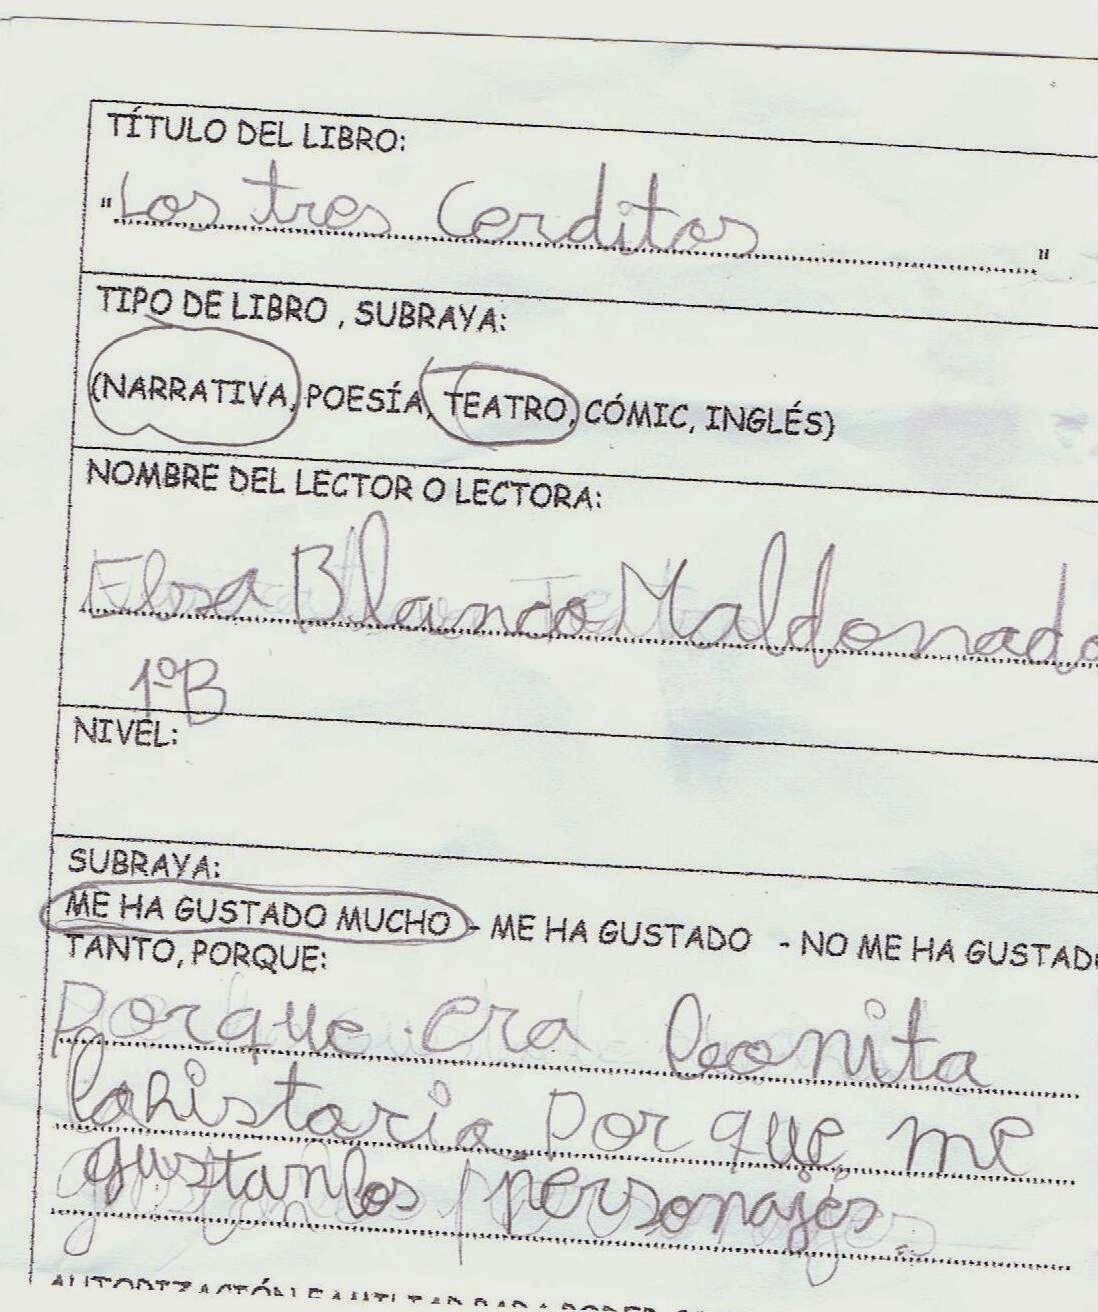 TÍTULO DEL LIBRO:
"Los tres Cerditos"
TIPO DE LIBRO , SUBRAYA:
(NARRATIVA, POESÍA, TEATRO, CÓMIC, INGLÉS)
NOMBRE DEL LECTOR O LECTORA:
Elsa Blanco Maldonado
1ºB
NIVEL:
SUBRAYA:
ME HA GUSTADO MUCHO - ME HA GUSTADO - NO ME HA GUSTADO
TANTO, PORQUE:
Porque era bonita
lahistoria Por que me
gustanlos personajes